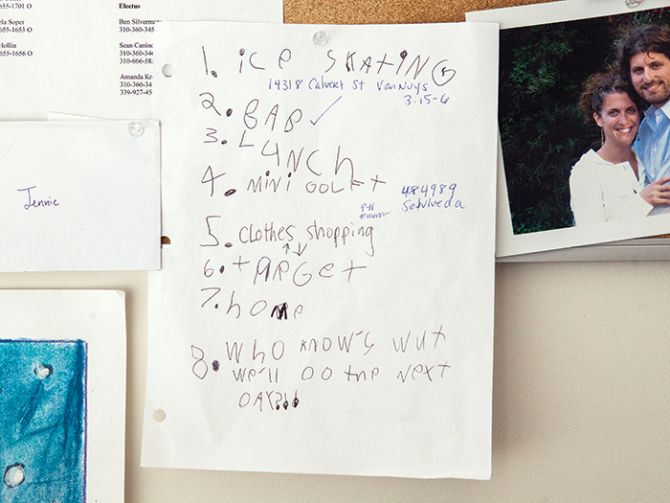 655-1701 O
ela Soper
655-1653 O
Hollin
655-1656 O
Electus
Ben Silverman
310-360-345
Sean Canino
310-360-34
310-666-58
Amanda Kr
339-927-45
Jennie
1. ice SKAtING
14318 Calvert St Van Nuys
3:15-6
2. BAP ✓
3. LUNCh
4. MiNi GOLF
484989
Sepulveda
5. clothes shopping
6. tARGet
7. home
8. WHO KNOW'S WUt
We'll DO the Next
DAY